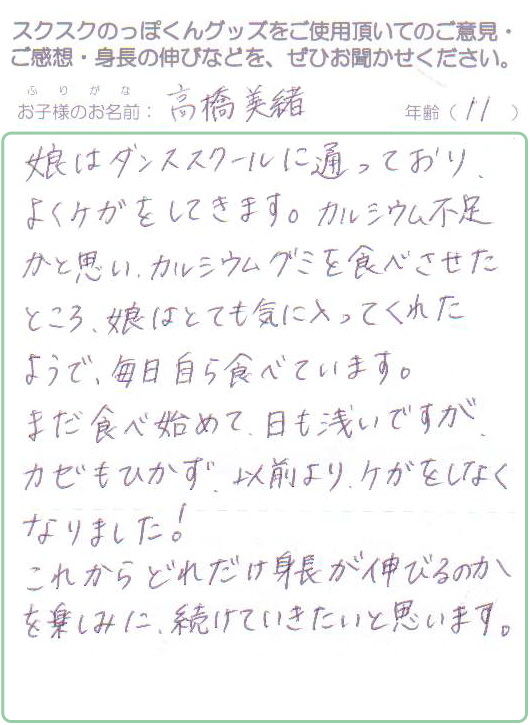 スクスクのっぽくんグッズをご使用頂いてのご意見・
ご感想・身長の伸びなどを、ぜひお聞かせください。
ふりがな
お子様のお名前： 高橋美緒 年齢（ 11 ）
娘はダンススクールに通っており、
よくケガをしてきます。カルシウム不足
かと思い、カルシウムグミを食べさせた
ところ、娘はとても気に入ってくれた
ようで、毎日自ら食べています。
まだ食べ始めて、日も浅いですが、
カゼもひかず、以前より、ケガをしなく
なりました！
これからどれだけ身長が伸びるのか
を楽しみに、続けていきたいと思います。